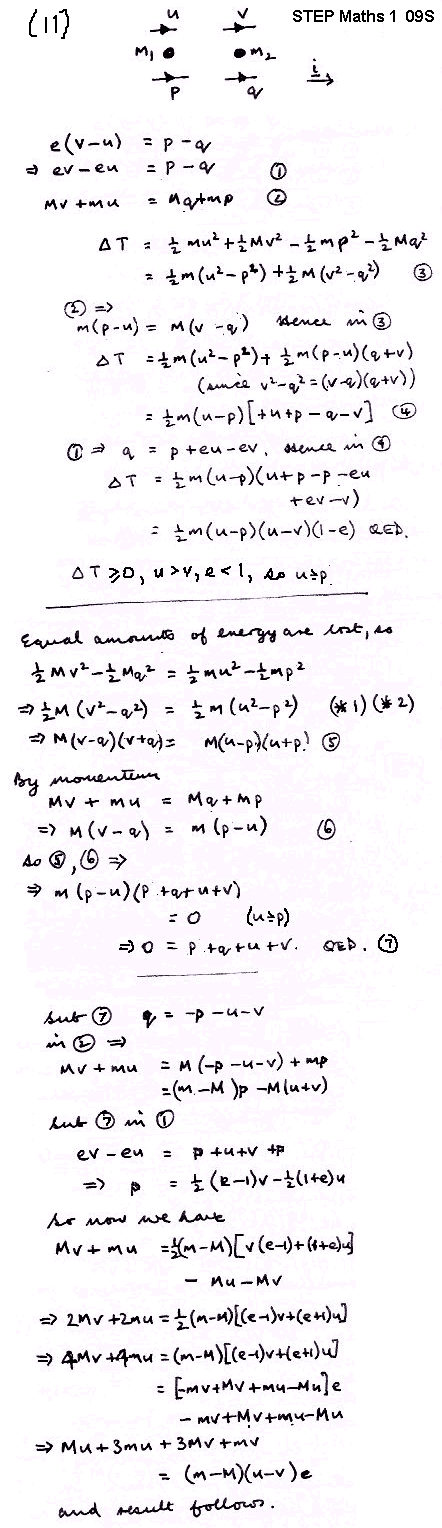 (11) u v STEP Maths 1 09S
M₁ M₂ i
p q
e(v-u) = p-q
⇒ ev-eu = p-q ①
Mv+mu = Mq+mp ②
ΔT = ½mu²+½Mv²-½mp²-½Mq²
= ½m(u²-p²)+½M(v²-q²) ③
② ⇒
m(p-u) = M(v-q) Hence in ③
ΔT = ½m(u²-p²)+½m(p-u)(q+v)
(since v²-q²=(v-q)(q+v))
= ½m(u-p)[+u+p-q-v] ④
① ⇒ q = p+eu-ev, Hence in ④
ΔT = ½m(u-p)(u+p-p-eu
+ev-v)
= ½m(u-p)(u-v)(1-e) QED.
ΔT≥0, u>v, e<1, so u≥p
Equal amounts of energy are lost, so
½Mv²-½Mq² = ½mu²-½mp²
⇒ ½M(v²-q²) = ½m(u²-p²) (*1) (*2)
⇒ M(v-q)(v+q) = M(u-p)(u+p) ⑤
By momentum
Mv+mu = Mq+mp
⇒ M(v-q) = m(p-u) ⑥
so ⑤, ⑥ ⇒
⇒ m(p-u)(p+q+u+v)
= 0 (u≥p)
⇒ 0 = p+q+u+v. QED. ⑦
sub ⑦ q = -p-u-v
in ② ⇒
Mv+mu = M(-p-u-v)+mp
=(m-M)p-M(u+v)
sub ⑦ in ①
ev-eu = p+u+v+p
⇒ p = ½(e-1)v-½(1+e)u
So now we have
Mv+mu =½(m-M)[v(e-1)+(1+e)u]
- Mu-Mv
⇒ 2Mv+2mu=½(m-M)[(e-1)v+(e+1)u]
⇒ 4Mv+4mu=(m-M)[(e-1)v+(e+1)u]
= [-mv+Mv+mu-Mu]e
- mv+Mv+mu-Mu
⇒ Mu+3mu+3Mv+mv
= (m-M)(u-v)e
and result follows.